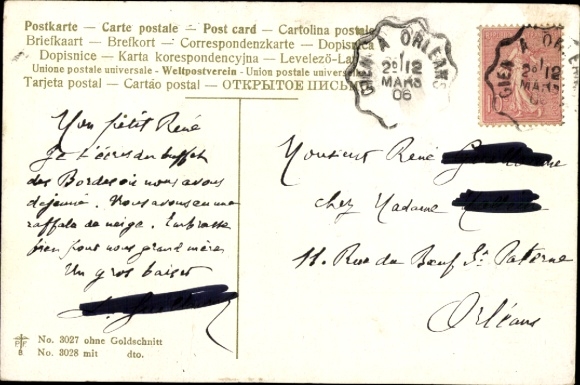 Postkarte — Carte postale — Post card — Cartolina postale
Briefkaart — Brefkort — Correspondenzkarte — Dopisnica
Dopisnice — Karta korespondencyjna — Levelező-La
Unione postale universale - Weltpostverein - Union postale universelle
Tarjeta postal — Cartão postal — ОТКРЫТОЕ ПИСЬ
GIEN A ORLEANS
2e 12
MARS
06
GIEN A ORLEANS
2e 12
MARS
06
Mon petit René
Je t'écris du buffet
des Bordes où nous avons
déjeuné. Nous avons eu une
raffale de neige. Embrasse
bien pour nous grand mère
Un gros baiser
Monsieur René
chez Madame
11. Rue du Bœuf St Paterne
Orléans
No. 3027 ohne Goldschnitt
No. 3028 mit dto.